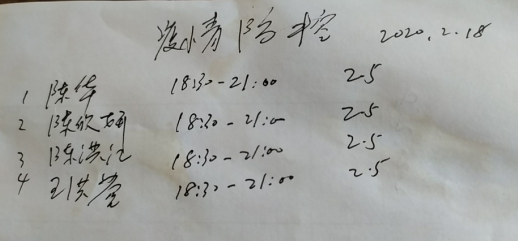 疫情防控 2020.2.18
1 陈华 18:30-21:00 2.5
2 陈欣妍 18:30-21:00 2.5
3 陈洪江 18:30-21:00 2.5
4 王洪 18:30-21:00 2.5